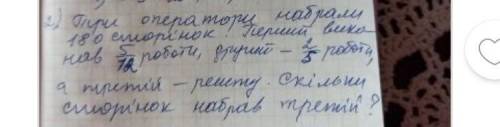 2) Три оператори набрали
180 сторінок. Перший вико-
нав 5/12 роботи, другий – 2/5 роботи,
а третій – решту. Скільки
сторінок набрав третій?